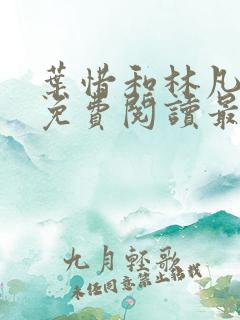 葉惜和林凡
免費閱讀最
九月輕歌
未经同意禁止转载